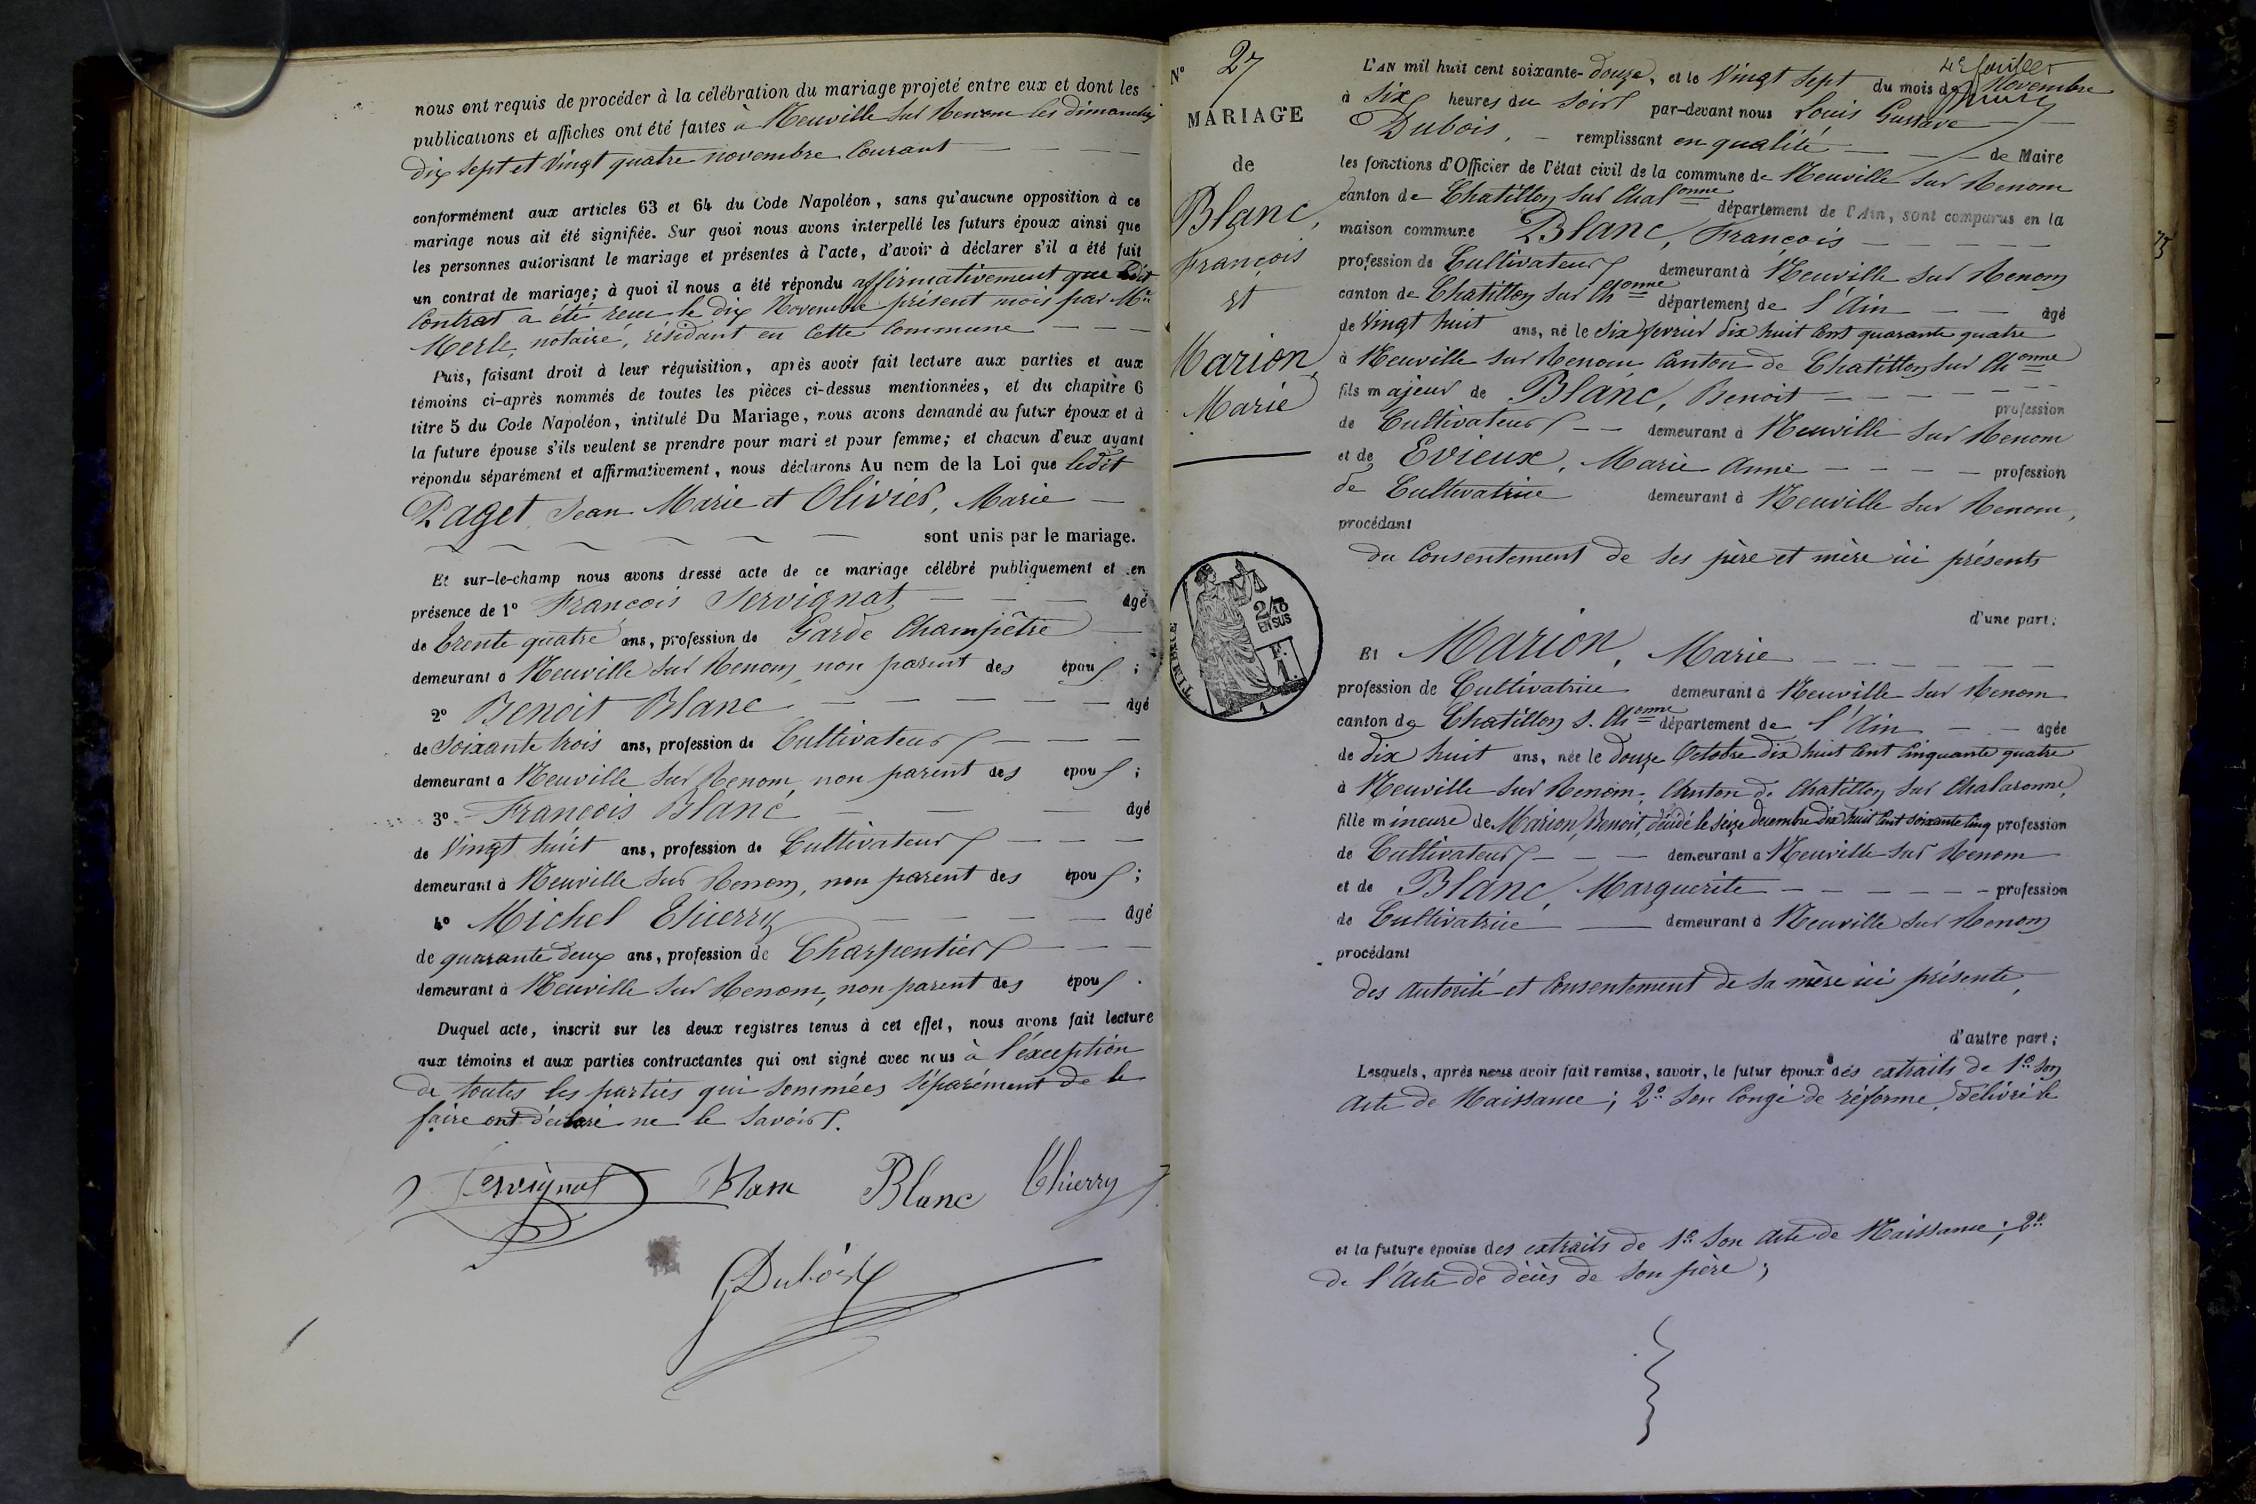 nous ont requis de procéder à la célébration du mariage projeté entre eux et dont les
publications et affiches ont été faites à Neuville sur Renom les dimanches
dix sept et vingt quatre novembre Courant
conformément aux articles 63 et 64 du Code Napoléon, sans qu'aucune opposition à ce
mariage nous ait été signifiée. Sur quoi nous avons interpellé les futurs époux ainsi que
les personnes autorisant le mariage et présentes à l'acte, d'avoir à déclarer s'il a été fait
un contrat de mariage; à quoi il nous a été répondu affirmativement que ledit
Contrat a été reçu le dix Novembre présent mois par Me
Merle, notaire, résidant en cette Commune
Puis, faisant droit à leur réquisition, après avoir fait lecture aux parties et aux
témoins ci-après nommés de toutes les pièces ci-dessus mentionnées, et du chapitre 6
titre 5 du Code Napoléon, intitulé Du Mariage, nous avons demandé au futur époux et à
la future épouse s'ils veulent se prendre pour mari et pour femme; et chacun d'eux ayant
répondu séparément et affirmativement, nous déclarons Au nom de la Loi que ledit
Paget, Jean Marie et Olivier, Marie
sont unis par le mariage.
Et sur-le-champ nous avons dressé acte de ce mariage célébré publiquement et en
présence de 1° François Servignat âgé
de trente quatre ans, profession de Garde Champêtre
demeurant à Neuville sur Renom, non parent des époux ;
2° Benoit Blanc âgé
de soixante trois ans, profession de Cultivateur
demeurant à Neuville sur Renom, non parent des époux ;
3° François Blanc âgé
de vingt huit ans, profession de Cultivateur
demeurant à Neuville sur Renom, non parent des époux ;
4° Michel Thierry âgé
de quarante deux ans, profession de Charpentier
demeurant à Neuville sur Renom, non parent des époux .
Duquel acte, inscrit sur les deux registres tenus à cet effet, nous avons fait lecture
aux témoins et aux parties contractantes qui ont signé avec nous à l'exception
de toutes les parties qui sommées séparément de le
faire ont déclaré ne le savoir.
Servignat Blanc Blanc Thierry
GDubois
N° 27
MARIAGE
de
Blanc,
François
et
Marion,
Marie
TIMBRE
2/10
EN SUS
F.
1.
1
4e feuillet
L'AN mil huit cent soixante-douze, et le Vingt Sept du mois de Novembre
à Six heures du soir par-devant nous Louis Gustave
Dubois, remplissant en qualité de Maire
les fonctions d'Officier de l'état civil de la commune de Neuville sur Renom
canton de Chatillon sur Chalonne département de l'Ain, sont comparus en la
maison commune Blanc, François
profession de Cultivateur demeurant à Neuville sur Renom
canton de Chatillon sur Chonne département de l'Ain âgé
de Vingt huit ans, né le Six février dix huit cent quarante quatre
à Neuville sur Renom, Canton de Chatillon sur Chonne
fils majeur de Blanc, Benoit profession
de Cultivateur demeurant à Neuville sur Renom
et de Evieux, Marie Anne profession
de Cultivatrice demeurant à Neuville sur Renom,
procédant
du Consentement de ses père et mère ici présents
d'une part;
Et Marion, Marie
profession de Cultivatrice demeurant à Neuville sur Renom
canton de Chatillon s. Chonne département de l'Ain âgée
de dix huit ans, née le douze Octobre dix huit cent cinquante quatre
à Neuville sur Renom, Canton de Chatillon sur Chalaronne,
fille mineure de Marion, Benoit, décédé le seize décembre dix huit cent soixante cinq profession
de Cultivateur demeurant à Neuville sur Renom
et de Blanc, Marguerite profession
de Cultivatrice demeurant à Neuville sur Renom
procédant
des autorité et Consentement de sa mère ici présente,
d'autre part;
Lesquels, après nous avoir fait remise, savoir, le futur époux des extraits de 1° son
acte de Naissance; 2° Son Congé de réforme, délivré le
et la future épouse des extraits de 1° Son acte de Naissance; 2°
de l'acte de décès de son père;